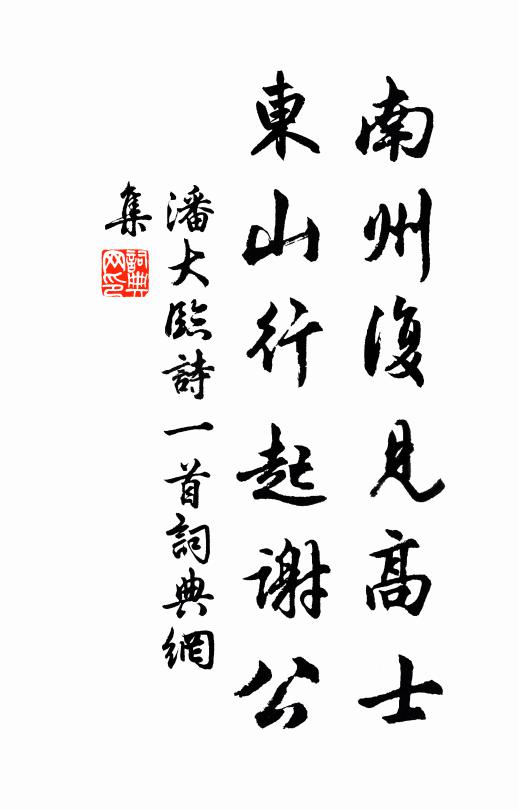 南州復見高士
東山行起謝公
潘大臨詩一首詞典網
集
詞典
网印